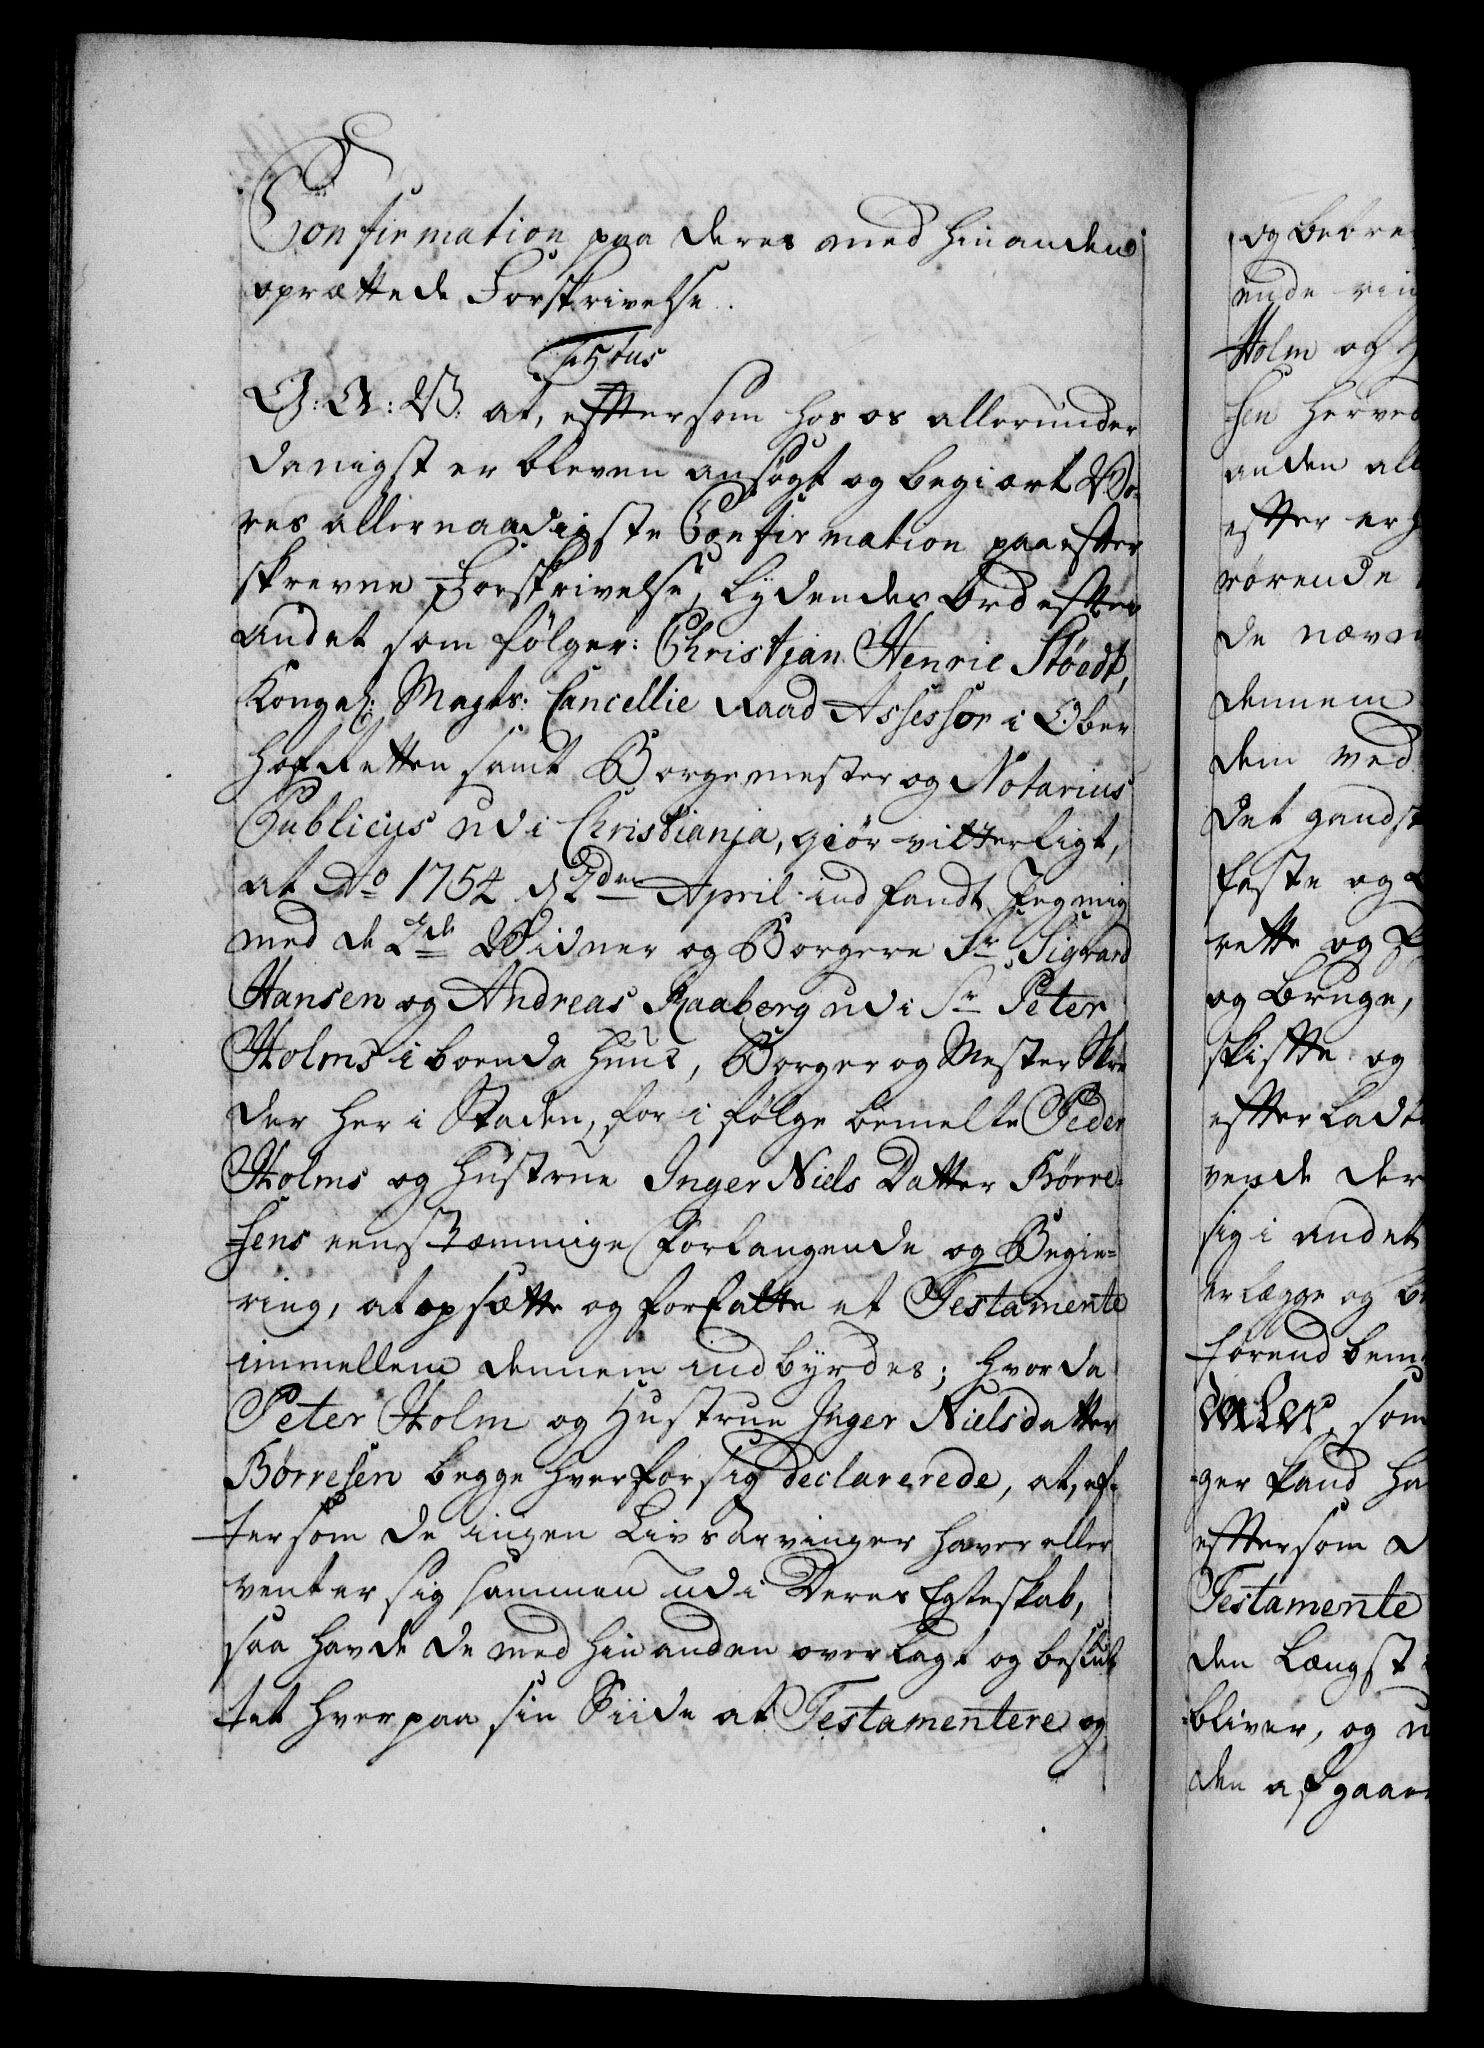 Confirmation paa deres med hinanden
oprættede Forskrivelse.
Textus
G: A: V: at, eftersom hos os allerunder
danigst er bleven ansøgt og begiært Vo-
res allernaadigste Confirmation paa efter
skrevne Forskrivelse, lydendes Ord efter
andet som følger: Christjan Henric Støedt,
Kongel: Mayts: Cancellie Raad Assessor i Ober
HofRetten samt Borgemester og Notarius
Publicus udi Christianja, giør vitterligt,
at Ao 1754 d 2den April indfandt Jeg mig
med de 2de Vidner og Borgere Sr Sigvard
Hansen og Andreas Raaberg udi Sr Peter
Holms iboende Huus, Borger og Mester Skre
der her i Staden, for i følge bemelte Peder
Holms og Hustrue Inger Niels Datter Børre-
sens eenstæmmige Forlangende og Begie-
ring, at opsætte og forfatte et Testamente
immellem dennem indbyrdes; hvor da
Peter Holm og Hustrue Inger Nielsdatter
Børresen begge hver for sig declarerede, at, ef-
tersom de ingen Livs Arvinger haver eller
venter sig sammen udi Deres Egteskab,
saa havde de med hinanden overlagt og beslut
tet hver paa sin Siide at Testamentere og
og bebre
ende vin
Holm og
sen herved
anden all
efter erh
rørende
de nævn
dennem
dem ved
det gandsk
faste og
rette og
og bruge,
skifte og
efterladt
vende der
sig i andet
erlægge og
førend bem
som
ger kand ha
eftersom
Testamente
den Længst
bliver, og u
den afgaae